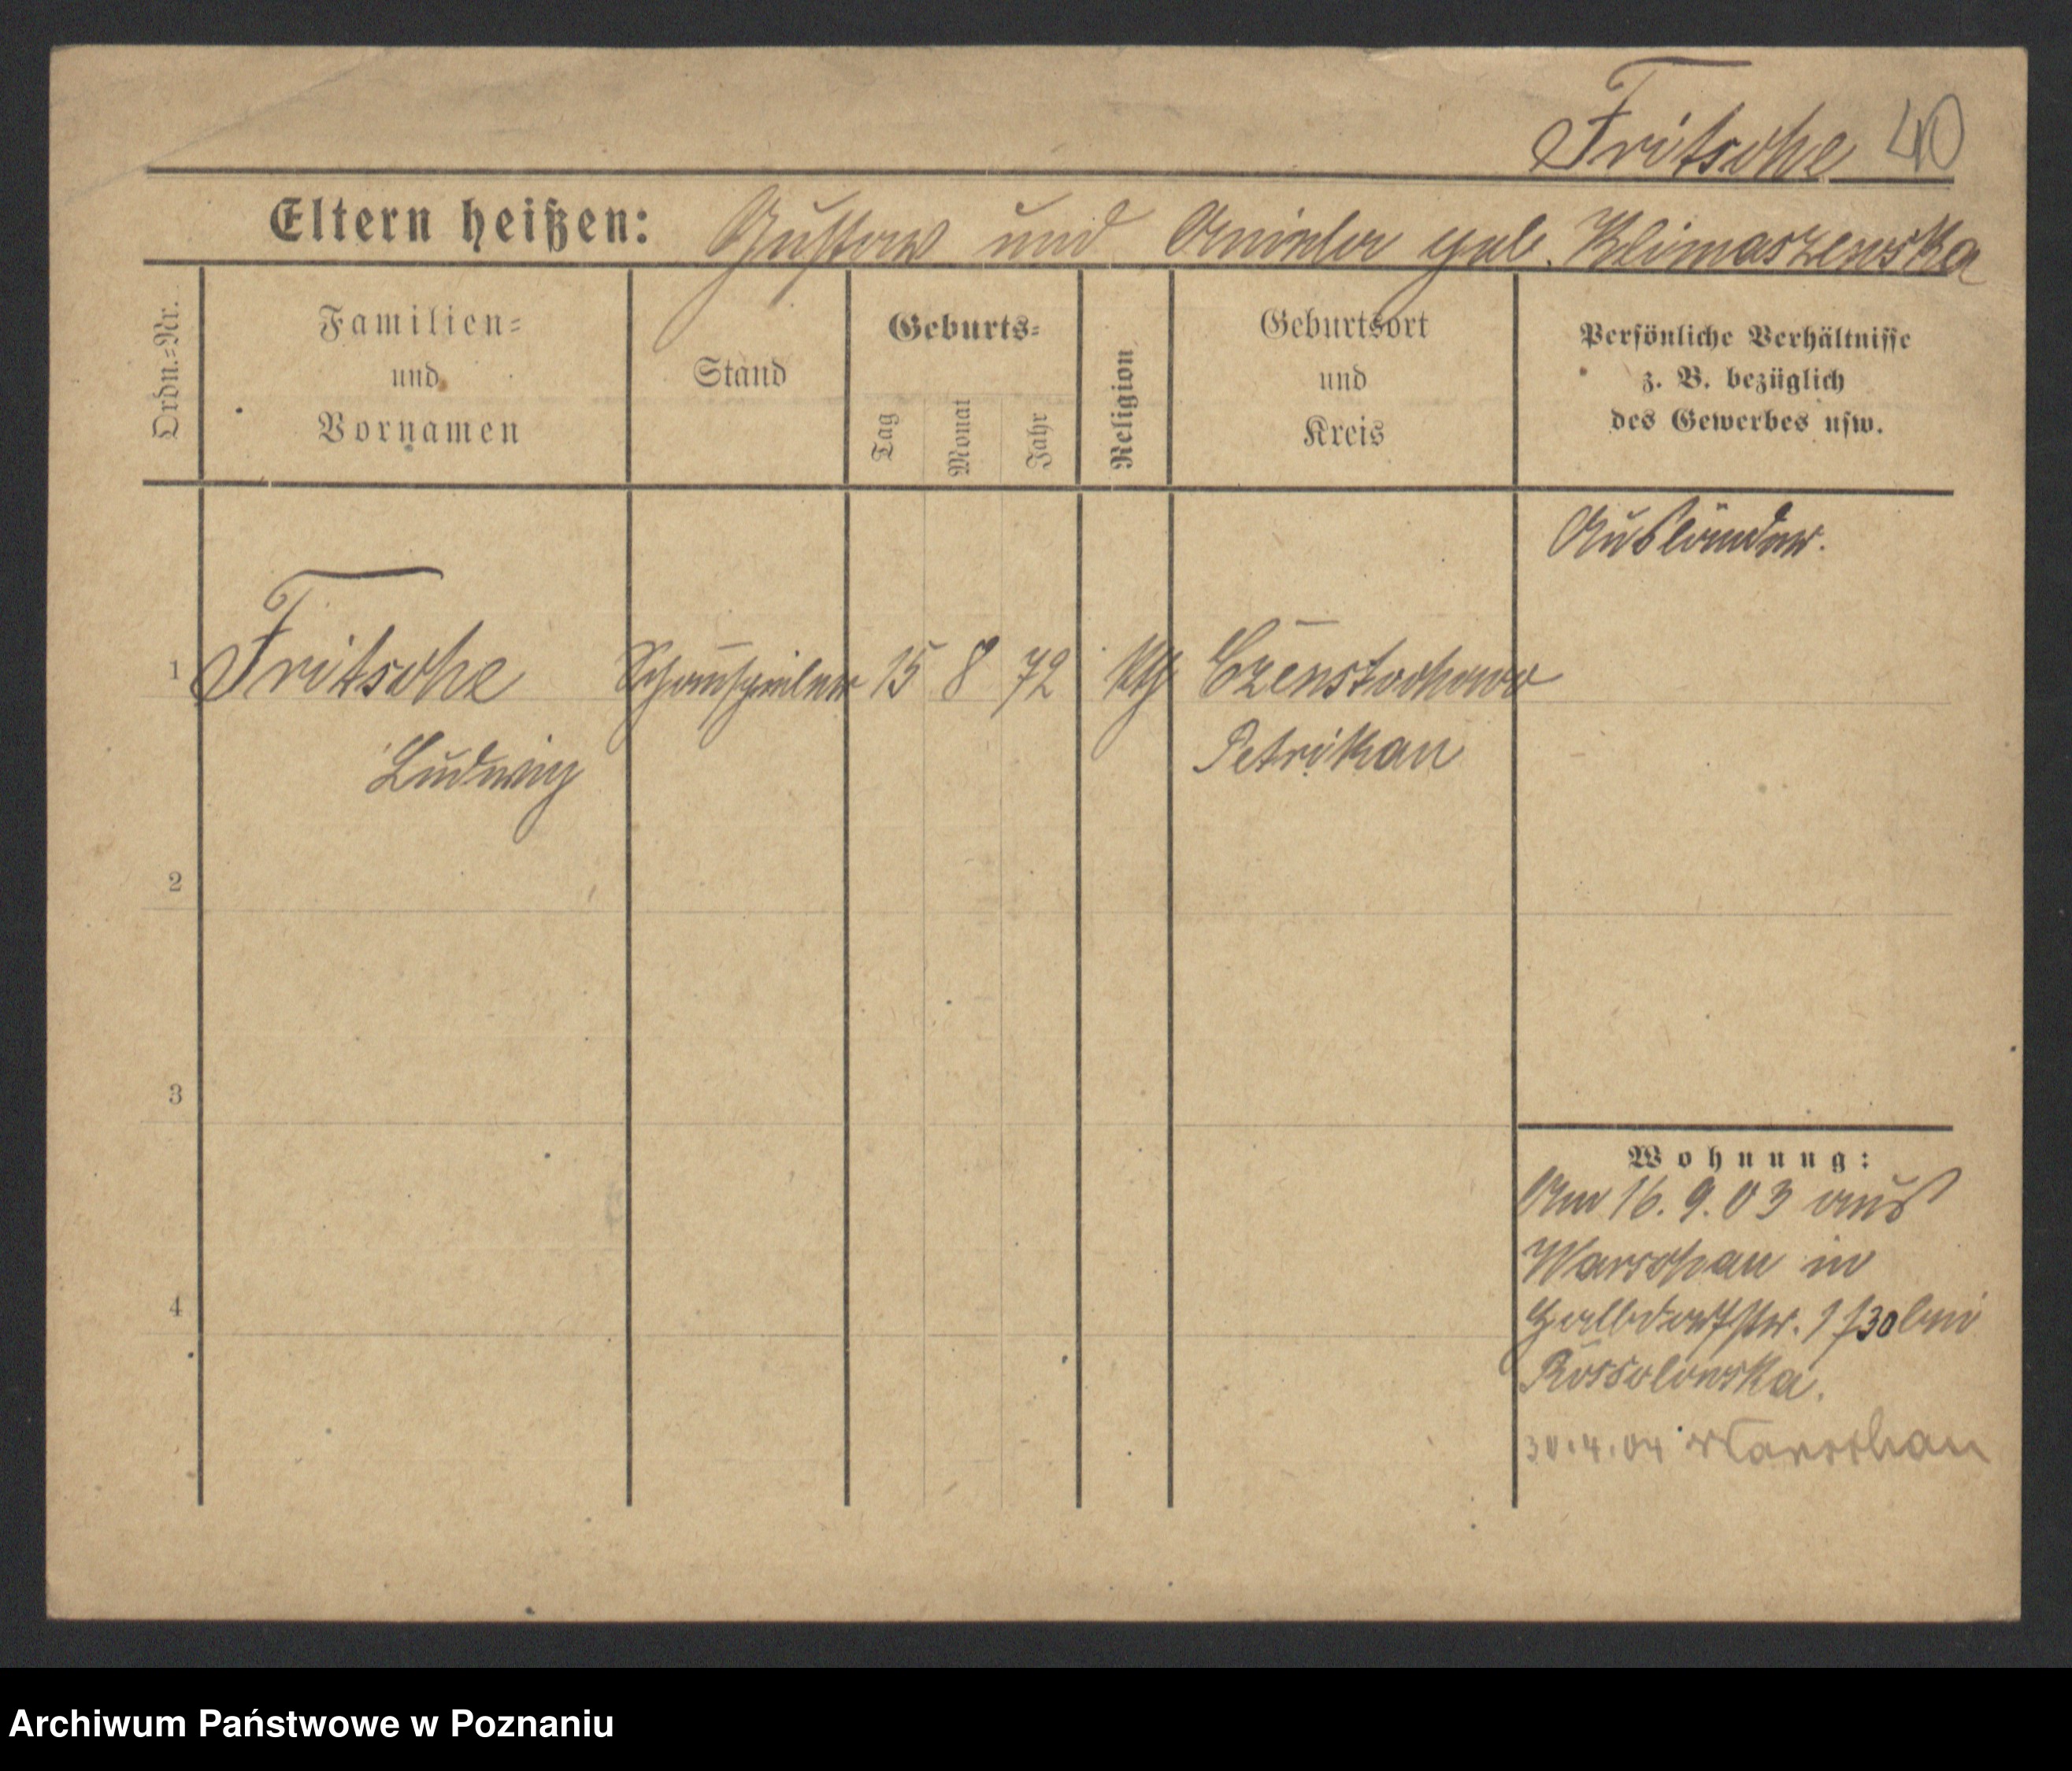 Fritsche 40
Eltern heißen: Gustav und geb. Klimaszewska
Ordn.=Nr.
Familien=
und
Vornamen
Stand
Geburts=
Tag
Monat
Jahr
Religion
Geburtsort
und
Kreis
Persönliche Verhältnisse
z. B. bezüglich
des Gewerbes usw.
Ausländer.
1 Fritsche Schauspieler 15 8 72 kth Czenstochowa
Ludwig Petrikau
2
3
4
Wohnung:
Am 16. 9. 03 aus
Warschau in
Halbdorfstr. 1 f 30 bei
Rossolowska.
30.4.04 Warschau
Archiwum Państwowe w Poznaniu